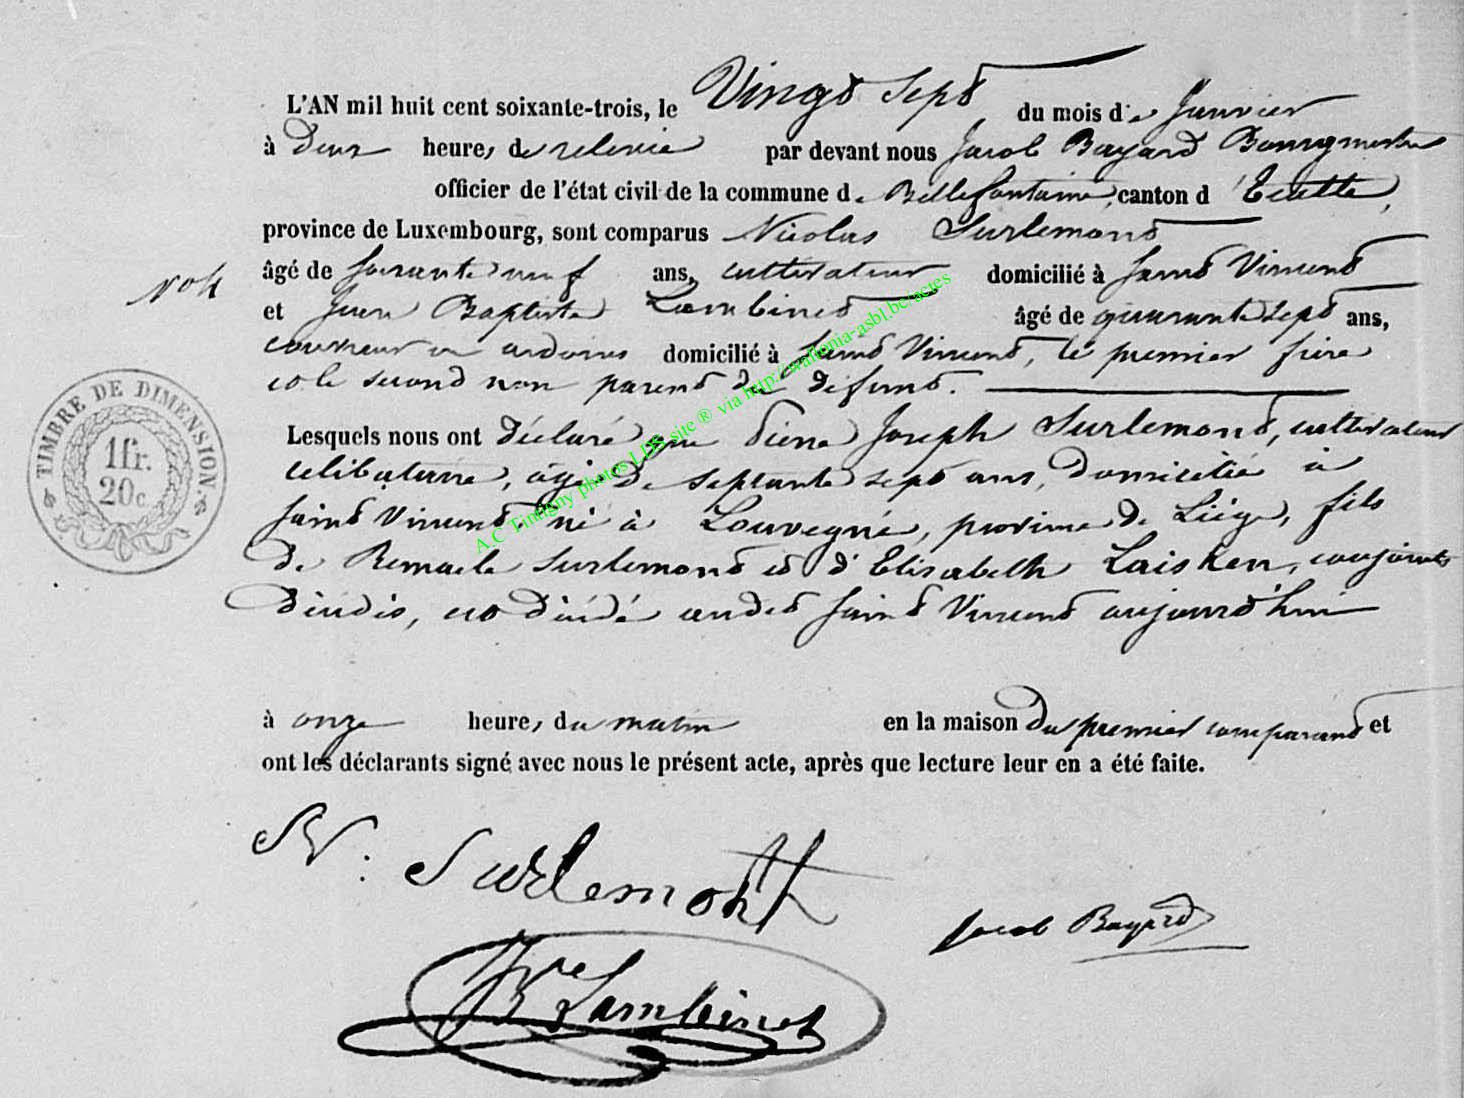 L'AN mil huit cent soixante-trois, le Vingt Sept du mois de Janvier
à Deux heures de relevée par devant nous Jacob Bayard Bourgmestre
officier de l'état civil de la commune de Bellefontaine, canton d'Etalle,
province de Luxembourg, sont comparus Nicolas Surlemont
âgé de soixante neuf ans, cultivateur domicilié à Saint Vincent
No 4
et Jean Baptiste Lambinet âgé de quarante sept ans,
couvreur en ardoises domicilié à Saint Vincent, le premier frère
et le second non parent du défunt.
Lesquels nous ont déclaré que Pierre Joseph Surlemont, cultivateur
célibataire, âgé de septante sept ans, domicilié à
Saint Vincent, né à Louvegné, province de Liége, fils
de Remacle Surlemont et d'Elisabeth Laisken, conjoints
décédés, est décédé audit Saint Vincent aujourd'hui
à onze heures du matin en la maison du premier comparant et
ont les déclarants signé avec nous le présent acte, après que lecture leur en a été faite.
TIMBRE DE DIMENSION
1fr.
20c
N. Surlemont
Jacob Bayard
JBte Lambinet
A.C Tintigny photos LDS site ® via http://wallonia-asbl.be/actes